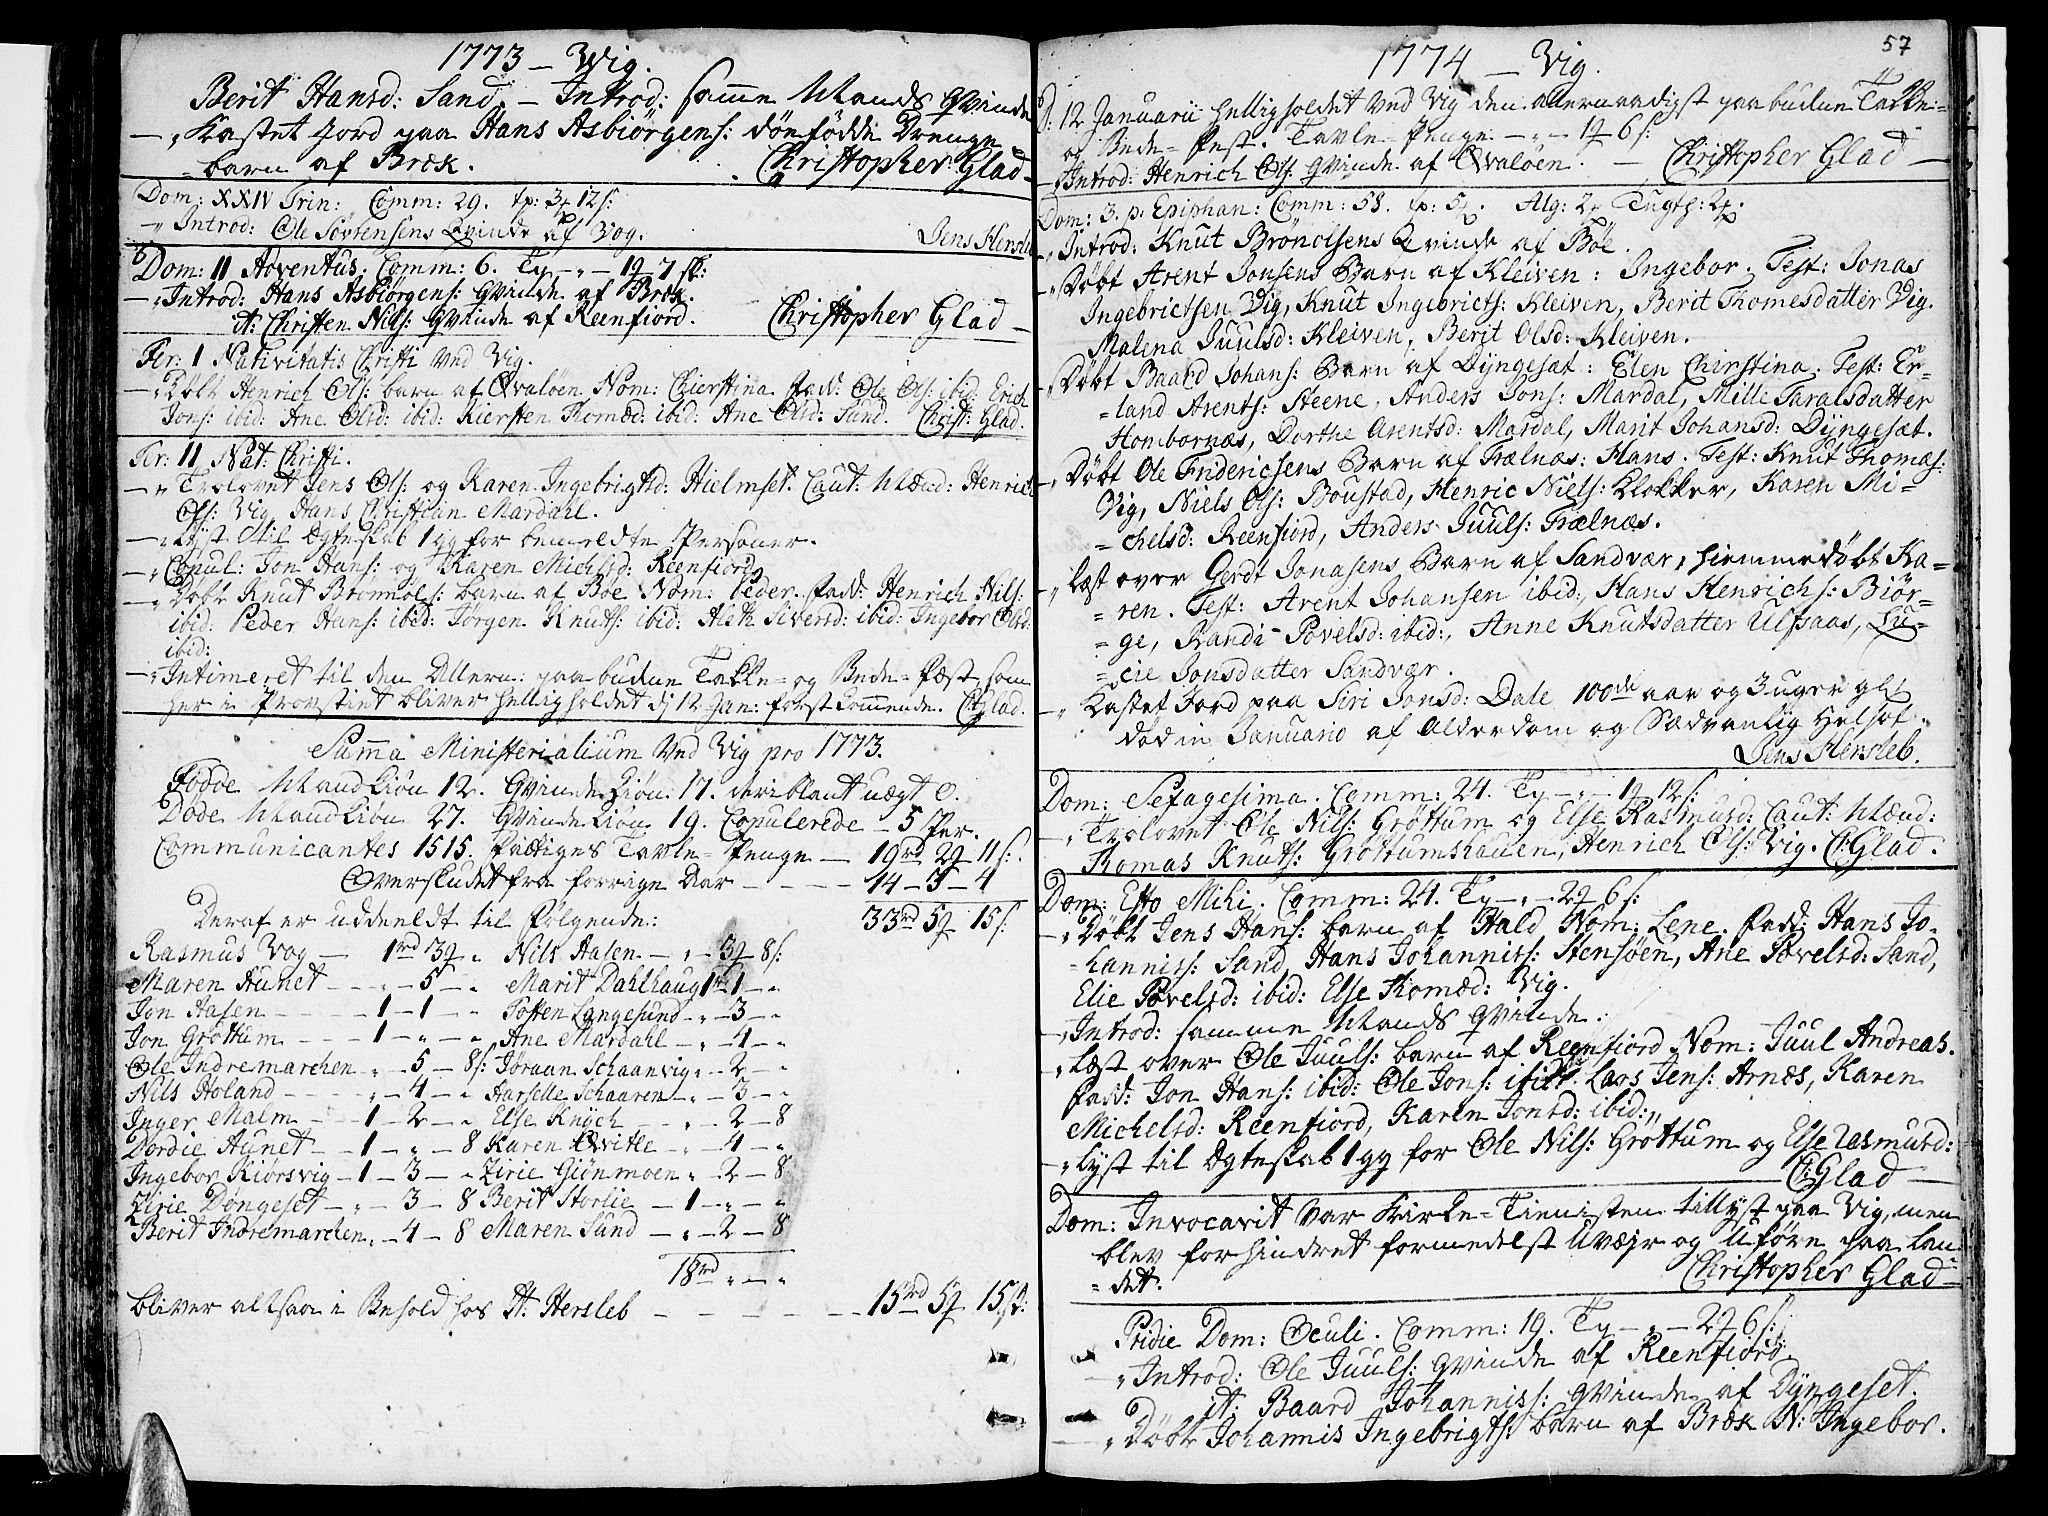 1773 – Vig.
Berit Hansd: Sand. – Introd: samme Mands Qvinde
–„ Kastet Jord paa Hans Asbiørgens: dönfödde Drenge-
-barn af Bræk. Christopher Glad–
Dom: XXIV Trin: Comm: 29. tp: 3 12 s:
–„ Introd: Ole Sörrensens Qvinde af Vog. Jens Hersleb
Dom: II Adventus. Comm: 6. Tp – „ – 1 7 s:
–„ Introd: Hans Asbiørgens: Qvinde af Bræk.
it: Christen Nils: Qvinde af Reenfiord. Christopher Glad –
Fer: I Nativitatis Christi Ved Vig.
–„ Döbt Henrich Ols: barn af Qvaløen Nom: Chierstina. Fadd: Ole Ols: ibid: Erich
Jons: ibid: Ane Olsd: ibid: Kiersten Thomæd: ibid: Ane Olsd: Sund. Christ: Glad.
Fer: II Nat: Christi.
–„ Trolovet Jens Ols: og Karen Ingebrigtsd: Hielmset. Caut: Mænd: Henrich
Ols: Vig, Hans Christian Mardahl.
–„ Lyst til Ægteskab 1 gg for bemeldte Personer.
–„ Copul: Jon Hans: og Karen Michelsd: Reenfiord
–„ Döbt Knut Brønnols: barn af Böe Nom: Peder. Fadd: Henrich Nils:
ibid: Peder Hans: ibid: Jörgen Knuts: ibid: Aleth Siversd: ibid: Ingebor Olsd:
ibid:
–„ Intimeret til den Allern: paabudne Takke- og Bede-Fæst, som
her i Provstiet bliver helligholdet d: 12 Jan: förstkommende. C: Glad.
Summa Ministerialium Ved Vig pro 1773.
Födde Mandkiön 12. Qvindekiön 17. deriblant uægt 0.
Döde Mandkiön 27. Qvindekiön 19. Copulerede – 5 Par.
Communicantes 1515. Fattiges Tavle-Penge – 19rd 2 – 11 s:
Overskudet fra forrige Aar – – – – 14 – 3 – 4
Deraf er uddeeldt til Fölgende: 33rd 5 15 s:
Rasmus Vog – 1rd 3 „ Nils Aasen – „ – 3 – 8 s:
Maren Aunet – – „ – 5 – „ Marit Dahlhaug 1 – 1 – „
Jon Aasen – – – – 1 – 1 – „ Tosten Langesund – „ – 3 – „
Jon Gröttum – – – 1 – „ – „ Ane Mardahl – „ – 4 – „
Ole Indremarchen „ – 5 – 8 s: Jöraan Schaanvig „ – 2 – „
Nils Holand – – – „ – 4 – „ Harselle Schaaren – „ – 3 – „
Inger Malm – – 1 – 2 – „ Else Knÿch – – „ – 2 – 8
Dordie Aunet – – 1 – „ – 8 Karen Qvitle – „ – 4 – „
Ingebor Kiörsvig – 1 – 3 – „ Zirie Giönmoen „ – 2 – 8
Zirie Döngeset – „ – 3 – 8 Berit Storlie – 1 – „ – „
Berit Indremarchen „ – 4 – 8 Maren Sund – „ – 2 – 8
18rd „ – „
bliver altsaa i Behold hos Hr. Hersleb – – – – – 15rd 5 15 s:
57
1774 – Vig.
D: 12 Januarii helligholdet ved Vig den allernaadigst paabudne Takke-
og Bede-Fest. Tavle-Penge – „ – 1 6 s:
–„ Introd: Henrich Ols: Qvinde af Qvaløen. – Christopher Glad –
Dom: 3. p. Epiphan: Comm: 58. tp: 5. Alg: 2 Tugth: 2.
–„ Introd: Knut Brönolsens Qvinde af Böe.
–„ Döbt Arent Jonsens Barn af Kleiven: Ingebor. Test: Jonas
Ingebrictsen Vig, Knut Ingebricts: Kleiven, Berit Thomesdatter Vig.
Malena Juulsd: Kleiven, Berit Olsd: Kleiven.
–„ Döbt Baard Johans: Barn af Dÿngesæt: Elen Chirstina. Test: Er-
-land Arents: Steene, Anders Jons: Mardal, Mille Taralsdatter
Hombornæs, Dorthe Arentsd: Mardal, Marit Johansd: Dÿngesæt.
–„ Döbt Ole Fridericsens Barn af Trælnæs: Hans. Test: Knut Thomæs:
Vig, Niels Ols: Boustad, Henric Niels: Klokker, Karen Mi-
-chelsd: Reenfiord, Anders Juuls: Trælnæs.
–„ Læst over Gerdt Jonasens Barn af Sandvær, hiemmedöbt Ka-
-ren. Test: Arent Johansen ibid:, Hans Henrichs: Biör-
-ge, Randi Povelsd: ibid:, Anne Knutsdatter Ulfsaas, Lu-
-cie Jonsdatter Sandvær.
–„ Kastet Jord paa Siri Jonsd: Dale 100de aar og 3 uger gl:
död in Januario af Alderdom og Sædvanlig Helsot.
Jens Hersleb.
Dom: Sexagesima. Comm: 24. Tp – „ – 1 12 s:
–„ Trolovet Ole Nils: Gröttum og Else Rasmusd: Caut: Mænd:
Thomas Knuts: Gröttumshauen, Henrich Ols: Vig. C: Glad.
Dom: Esto Mihi. Comm: 24. Tp – „ – 2 6 s:
–„ Döbt Jens Hans: barn af Hald Nom: Lene. Fadd: Hans Jo-
-hanniss: Sand, Hans Johanniss: Stensöen, Ane Povelsd: Sand,
Elie Povelsd: ibid: Else Thomæd: Vig.
–„ Introd: samme Mands Qvinde.
–„ Læst over Ole Juuls: barn af Reenfiord Nom: Juul Andreas.
Fadd: Jon Hans: ibid: Ole Jons: ibid: Lars Jens: Arnæs, Karen
Michelsd: Reenfiord, Karen Jonsd: ibid:
–„ Lyst til Ægteskab 1 gg for Ole Nils: Gröttum og Else Rasmusd:
C: Glad –
Dom: Invocavit var Kirke-Tienisten tillyst paa Vig, men
blev forhindret formedelst Uvæjr og Uföre paa Lan-
-det. Christopher Glad –
Pridie Dom: Oculi. Comm: 19. Tp – „ – 2 6 s:
–„ Introd: Ole Juuls: Qvinde af Reenfiord.
it: Baard Johanniss: Qvinde af Dÿngeset.
–„ Döbt Johannis Ingebrigts: barn af Bræk N: Ingebor.